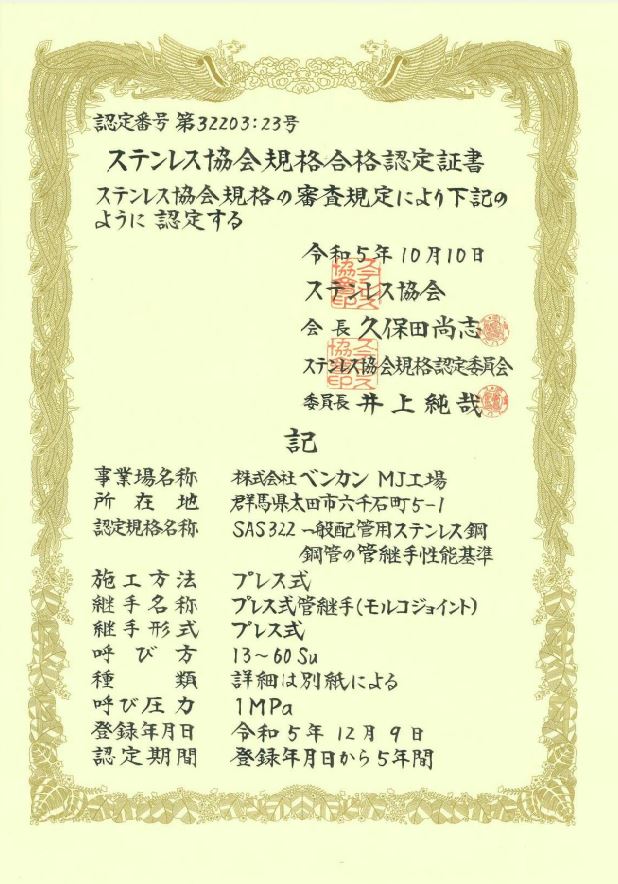 認定番号 第32203:23号
ステンレス協会規格合格認定証書
ステンレス協会規格の審査規定により下記の
ように 認定する
令和5年10月10日
ステンレス協会
会長 久保田尚志
ステンレス協会規格認定委員会
委員長 井上純哉
記
事業場名称 株式会社ベンカン MJ工場
所在地 群馬県太田市六千石町5-1
認定規格名称 SAS322 一般配管用ステンレス鋼
鋼管の管継手性能基準
施工方法 プレス式
継手名称 プレス式管継手(モルコジョイント)
継手形式 プレス式
呼び方 13~60Su
種類 詳細は別紙による
呼び圧力 1MPa
登録年月日 令和5年12月9日
認定期間 登録年月日から5年間